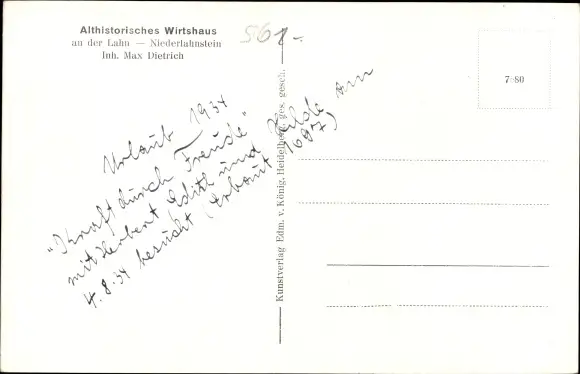 Althistorisches Wirtshaus
an der Lahn — Niederlahnstein
Inh. Max Dietrich
561.-
7:80
Urlaub 1934
"Kraft durch Freude"
mit Herbert Edith und Hilde am
4.8.34 besucht (Erbaut 1697)
Kunstverlag Edm. v. König, Heidelberg, ges. gesch.